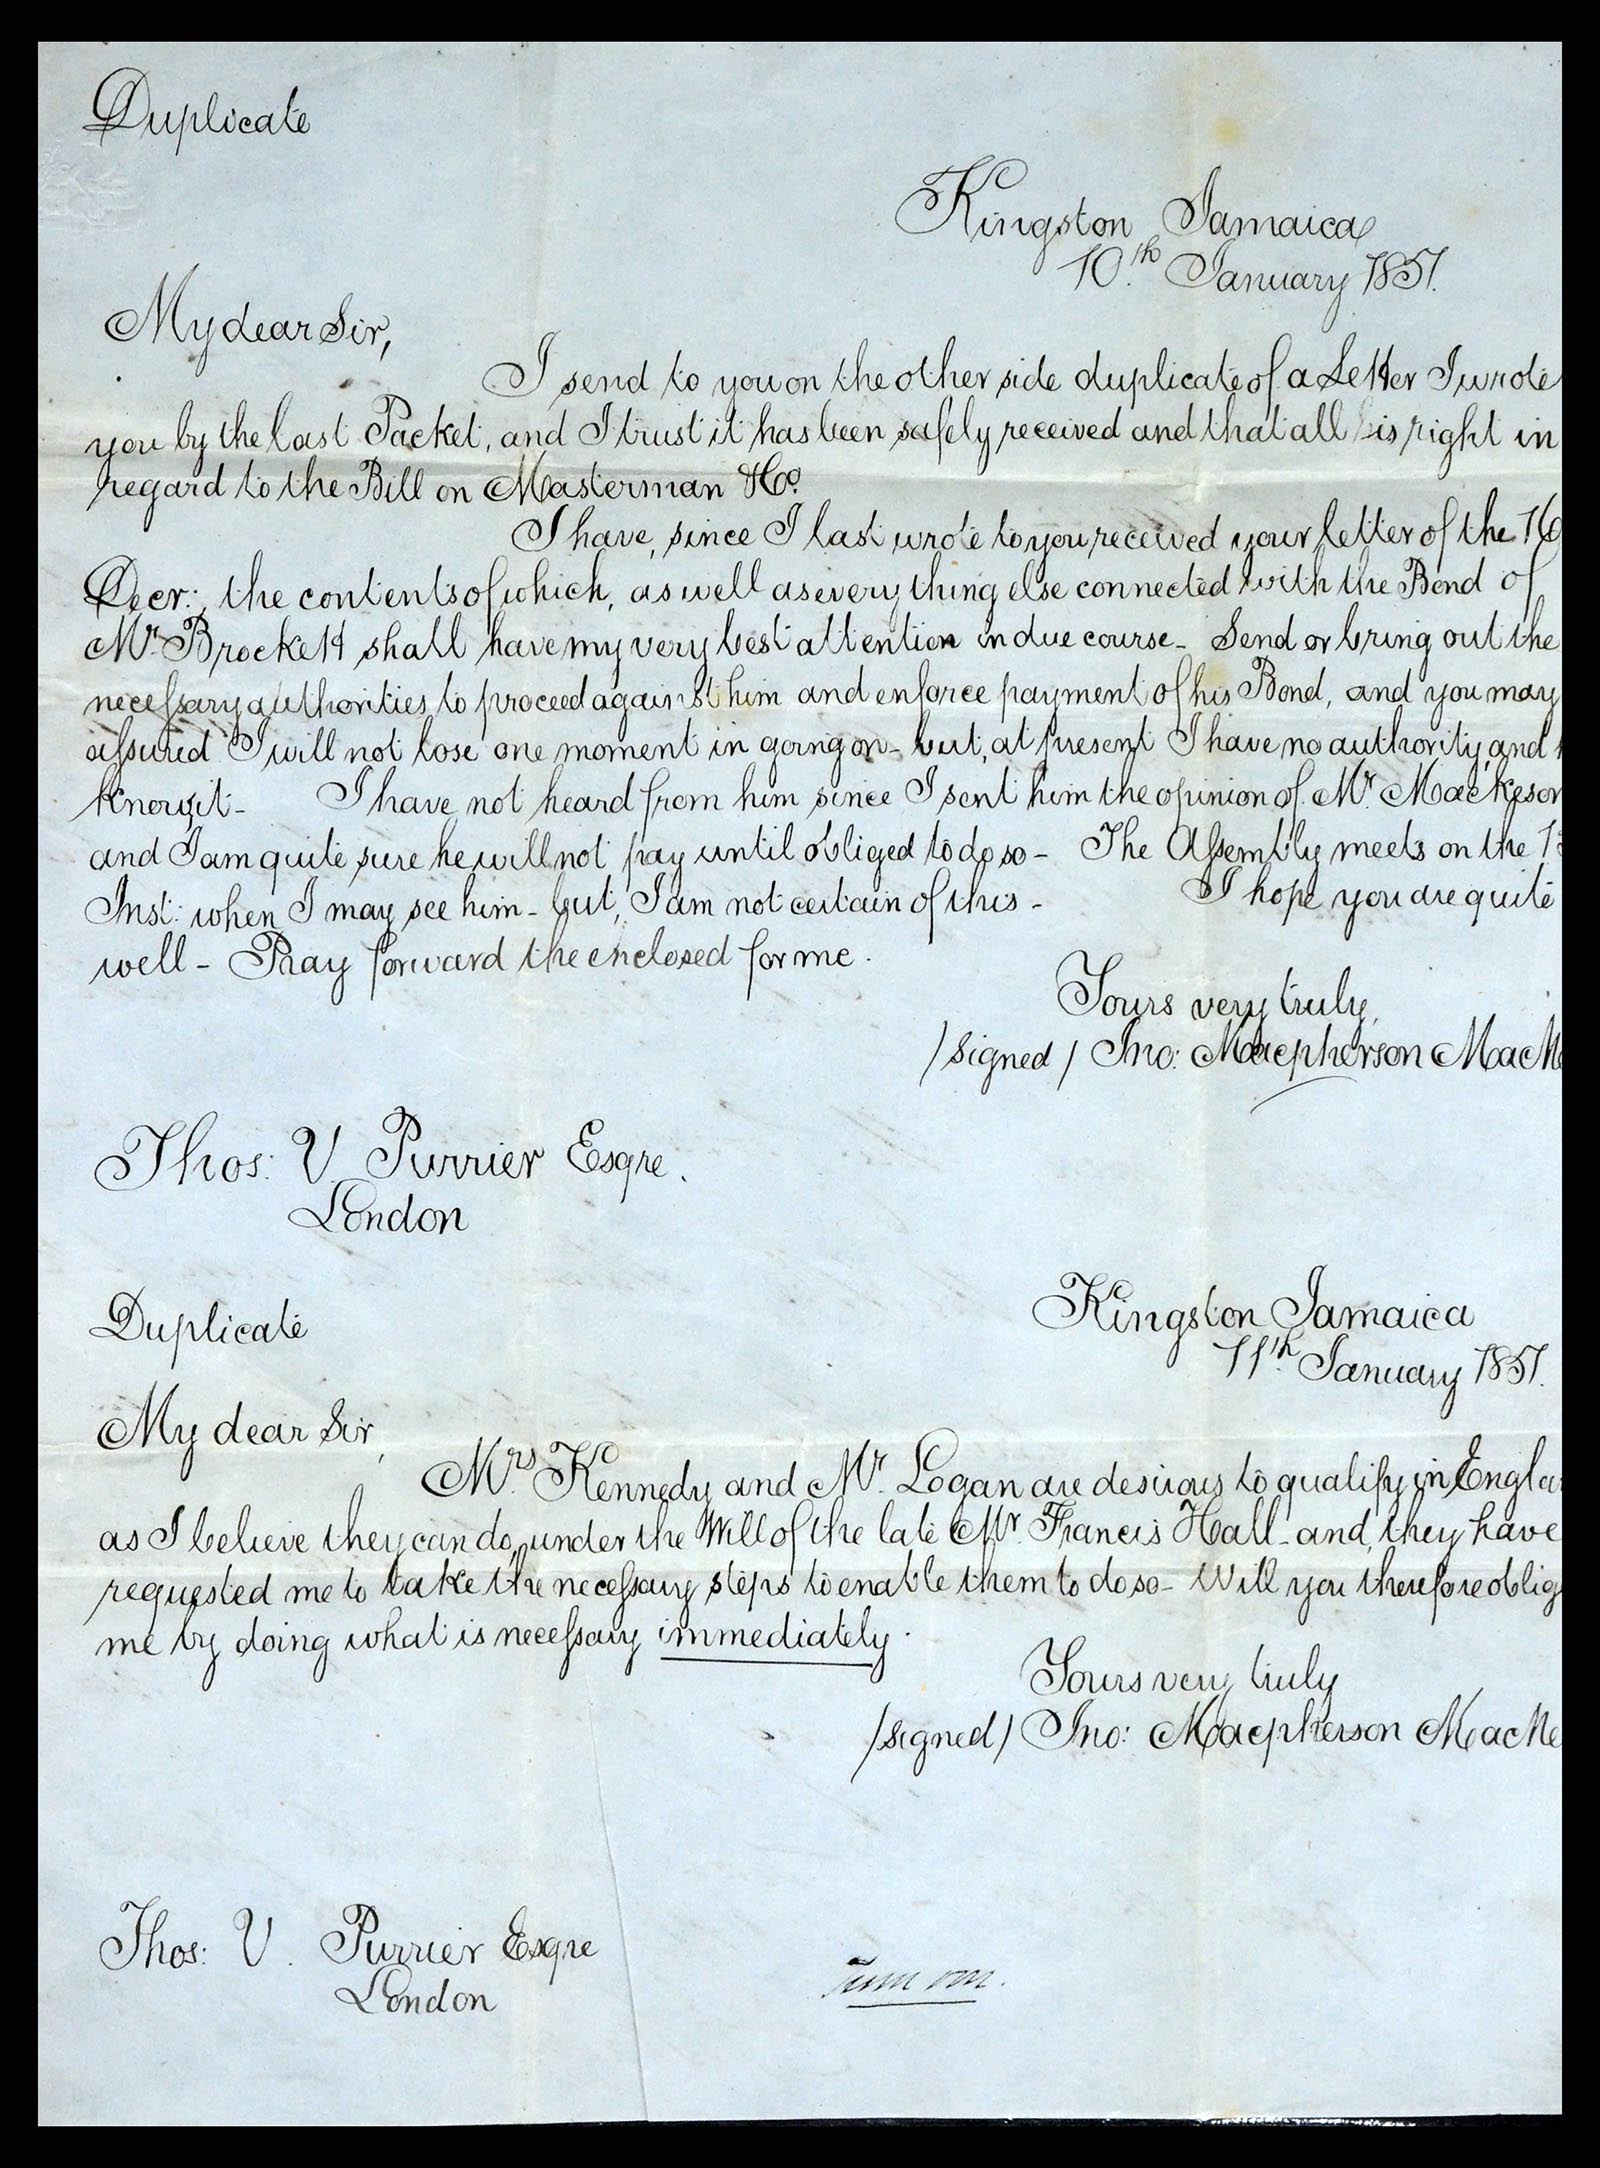 Duplicate
Kingston Jamaica
10th. January 1851.
My dear Sir,
I send to you on the other side duplicate of a Letter I wrote
you by the last Packet, and I trust it has been safely received and that all is right in
regard to the Bill on Masterman & Co.
I have, since I last wrote to you received your letter of the 16
Decr:, the contents of which, as well as every thing else connected with the Bond of
Mr. Brockett shall have my very best attention in due course - Send or bring out the
necessary authorities to proceed against him and enforce payment of his Bond, and you may
assured I will not lose one moment in going on - but, at present I have no authority, and
know it - I have not heard from him since I sent him the opinion of Mr. Mackeson
and I am quite sure he will not pay until obliged to do so - The Assembly meets on the
Inst: when I may see him - but, I am not certain of this -
I hope you are quite
well - Pray forward the enclosed for me.
Yours very truly,
/signed/ Jno: Macpherson MacN
Thos: V. Purrier Esqre.
London
Duplicate
Kingston Jamaica
11th. January 1851.
My dear Sir,
Mrs. Kennedy and Mr. Logan are desirous to qualify in Engla
as I believe they can do, under the Will of the late Mr. Francis Hall - and, they have
requested me to take the necessary steps to enable them to do so - Will you therefore oblig
me by doing what is necessary immediately.
Yours very truly
/signed/ Jno: Macpherson MacNe
Thos: V. Purrier Esqre
London